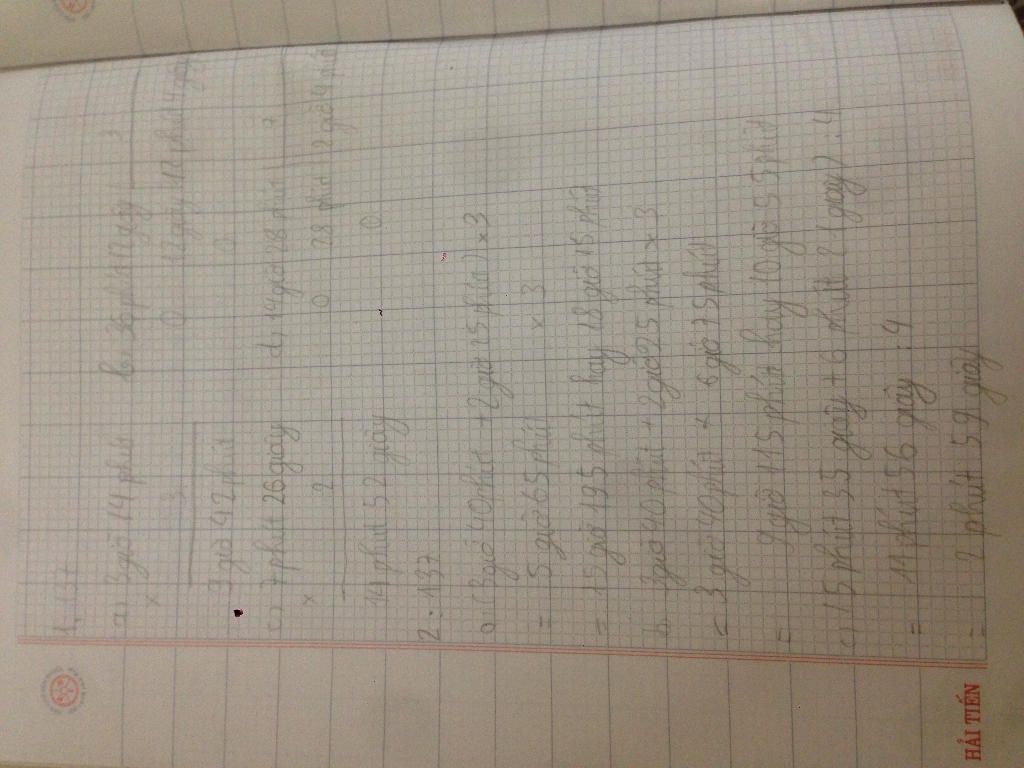 1, 137
a) 3 giờ 14 phút b. 36 phút 12 giây 3
x 3 0 12 giây 12 phút 4 giây
9 giờ 42 phút 0
c) 7 phút 26 giây d, 14 giờ 28 phút 7
x 2 0 28 phút 2 giờ 4 phút
14 phút 52 giây 0
2: 137
a. (3 giờ 40 phút + 2 giờ 25 phút) x 3
= 5 giờ 65 phút x 3
= 15 giờ 195 phút hay 18 giờ 15 phút
b. 3 giờ 40 phút + 2 giờ 25 phút x 3
= 3 giờ 40 phút + 6 giờ 75 phút
= 9 giờ 115 phút hay 10 giờ 55 phút
c, (5 phút 35 giây + 6 phút 21 giây) : 4
= 11 phút 56 giây : 4
= 2 phút 59 giây
HẢI TIẾN